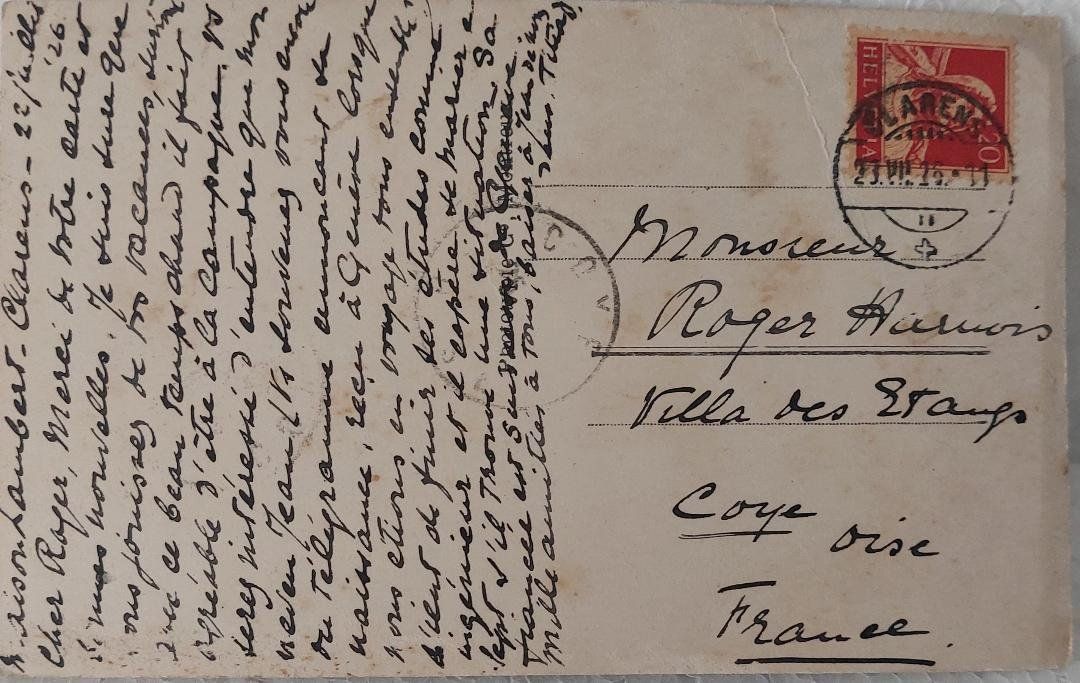 Maison Lambert - Clarens - 22 juillet
Cher Roger, Merci de votre carte et '26
nouvelles. Je suis sûre que
vous jouissez de vos vacances, surtout
avec ce beau temps chaud il fait
agréable d'être à la campagne. Vs
serez intéressé d'entendre que mon
neveu Jean (Vs souvenez vous encore
du télégramme annonçant sa
naissance, reçu à Genève lorsque
nous étions en voyage tous ensemble?)
vient de finir ses études comme
ingénieur et espère se marier en
sept s'il trouve une situation. Sa
fiancée est
Mille amitiés à tous,
HELVETIA
20
CLARENS
23.VII.26.-11
COYE
Monsieur
Roger Harnois
Villa des Etangs
Coye
Oise
France